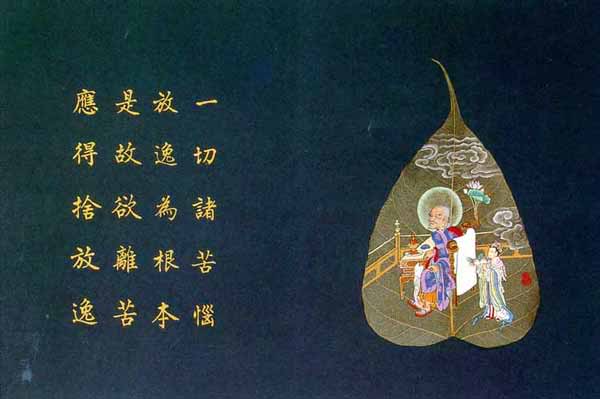 一切諸苦惱
放逸為根本
是故欲離苦
應得捨放逸